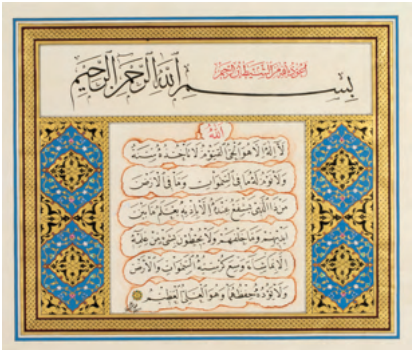 أعوذ بالله من الشيطان الرجيم
بسم الله الرحمن الرحيم
الله
لا إله إلا هو الحي القيوم لا تأخذه سنة
ولا نوم له ما في السموات وما في الأرض
من ذا الذي يشفع عنده إلا بإذنه يعلم ما بين
أيديهم وما خلفهم ولا يحيطون بشيء من علمه
إلا بما شاء وسع كرسيه السموات والأرض
ولا يؤده حفظهما وهو العلي العظيم